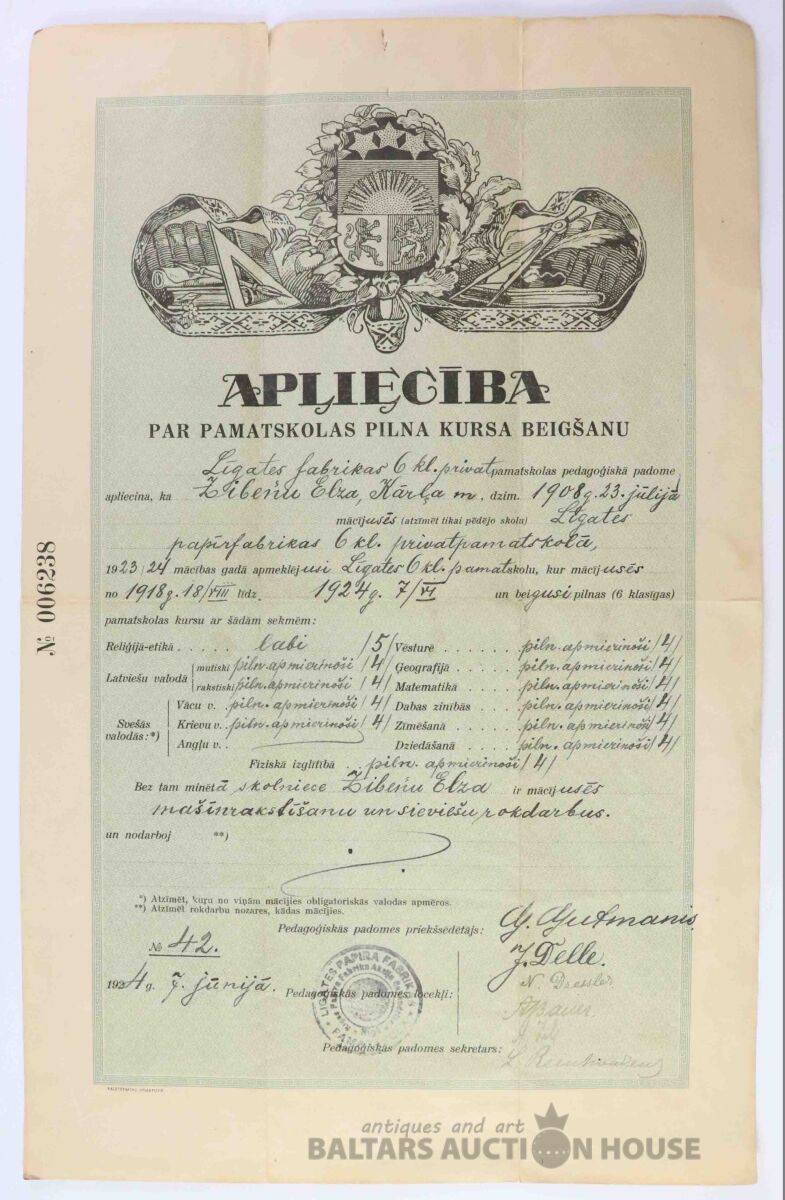 APLIECĪBA
PAR PAMATSKOLAS PILNA KURSA BEIGŠANU
Līgates fabrikas 6 kl. privat pamatskolas pedagoģiskā padome
apliecina, ka Zibeņu Elza, Kārļa m., dzim. 1908 g. 23. jūlijā
mācījusēs (atzīmēt tikai pēdējo skolu) Līgates
papīrfabrikas 6 kl. privatpamatskolā,
1923/24 mācības gadā apmeklējusi Līgates 6 kl. pamatskolu, kur mācījusēs
no 1918 g. 18/VIII līdz 1924 g. 7/VI un beigusi pilnas (6 klasīgas)
pamatskolas kursu ar šādām sekmēm:
Reliģijā-etikā . . . . labi /5/ Vēsturē . . . . . . piln. apmierinoši /4/
Latviešu valodā mutiski piln. apmierinoši /4/ Ģeografijā . . . . . piln. apmierinoši /4/
rakstiski piln. apmierinoši /4/ Matematikā . . . . piln. apmierinoši /4/
Svešās valodās:*) Vācu v. . piln. apmierinoši /4/ Dabas zinībās . . . . piln. apmierinoši /4/
Krievu v. . piln. apmierinoši /4/ Zīmēšanā . . . . . piln. apmierinoši /4/
Angļu v. . Dziedāšanā . . . . piln. apmierinoši /4/
Fiziskā izglītībā . . piln. apmierinoši /4/
Bez tam minētā skolniece Zibeņu Elza ir mācījusēs
mašīnrakstīšanu un sieviešu rokdarbus.
un nodarboj **)
*) Atzīmēt, kuŗu no viņām mācījies obligatoriskās valodas apmēros.
**) Atzīmēt rokdarbu nozares, kādas mācījies.
Pedagoģiskās padomes priekšsēdētājs: G. Gutmanis
№ 42.
J. Delle.
N. Dressler
1924 g. 7. jūnijā. Pedagoģiskās padomes locekļi:
LĪGATES PAPĪRA FABRIKAS
Pedagoģiskās padomes sekretārs:
№ 006238
antiques and art
BALTARS AUCTION HOUSE